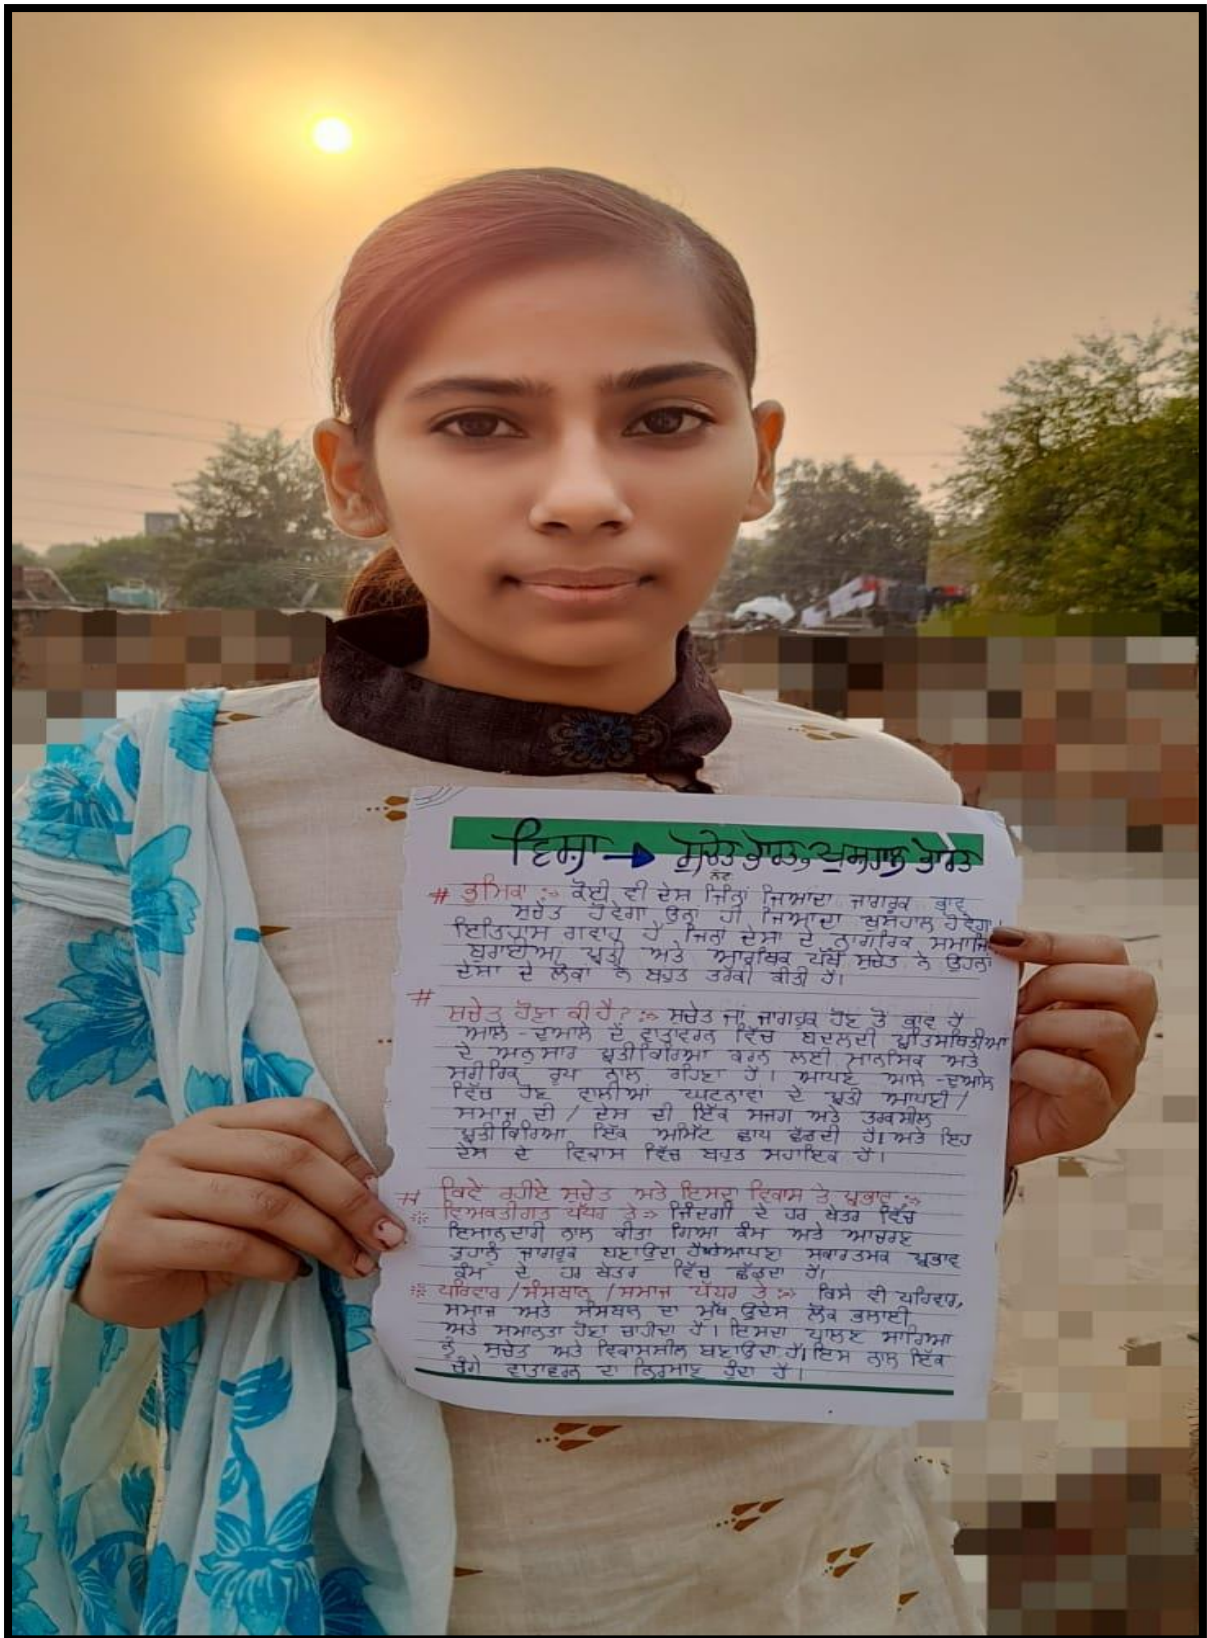 ਵਿਸ਼ਾ → ਸੁਚੇਤ ਭਾਰਤ, ਖੁਸ਼ਹਾਲ ਭਾਰਤ
ਨੋਟ
# ਭੂਮਿਕਾ :-> ਕੋਈ ਵੀ ਦੇਸ਼ ਜਿੰਨਾਂ ਜਿਆਦਾ ਜਾਗਰੂਕ ਭਾਵ
ਸੁਚੇਤ ਹੋਵੇਗਾ ਉਨਾ ਹੀ ਜਿਆਦਾ ਖੁਸ਼ਹਾਲ ਹੋਵੇਗਾ।
ਇਤਿਹਾਸ ਗਵਾਹ ਹੈ ਜਿਨਾਂ ਦੇਸਾ ਦੇ ਨਾਗਰਿਕ ਸਮਾਜਿਕ
ਬੁਰਾਈਆ ਪ੍ਰਤੀ ਅਤੇ ਆਰਥਿਕ ਪੱਖੋਂ ਸੁਚੇਤ ਨੇ ਉਹਨਾਂ
ਦੇਸਾ ਦੇ ਲੋਕਾਂ ਨੇ ਬਹੁਤ ਤਰੱਕੀ ਕੀਤੀ ਹੈ।
# ਸੁਚੇਤ ਹੋਣਾ ਕੀ ਹੈ? :-> ਸੁਚੇਤ ਜਾਂ ਜਾਗਰੂਕ ਹੋਣ ਤੋਂ ਭਾਵ ਹੈ
ਆਲੇ-ਦੁਆਲੇ ਦੇ ਵਾਤਾਵਰਨ ਵਿੱਚ ਬਦਲਦੀ ਪ੍ਰਤਿਸਥਿਤੀਆਂ
ਦੇ ਅਨੁਸਾਰ ਪ੍ਰਤੀਕਿਰਿਆ ਕਰਨ ਲਈ ਮਾਨਸਿਕ ਅਤੇ
ਸਰੀਰਿਕ ਰੂਪ ਨਾਲ ਰਹਿਣਾ ਹੈ। ਆਪਣੇ ਆਲੇ-ਦੁਆਲੇ
ਵਿੱਚ ਹੋਣ ਵਾਲੀਆਂ ਘਟਨਾਵਾਂ ਦੇ ਪ੍ਰਤੀ ਆਪਣੀ/
ਸਮਾਜ ਦੀ / ਦੇਸ ਦੀ ਇੱਕ ਸਜਗ ਅਤੇ ਤਰਕਸ਼ੀਲ
ਪ੍ਰਤੀਕਿਰਿਆ ਇੱਕ ਅਮਿੱਟ ਛਾਪ ਛੱਡਦੀ ਹੈ। ਅਤੇ ਇਹ
ਦੇਸ ਦੇ ਵਿਕਾਸ ਵਿੱਚ ਬਹੁਤ ਸਹਾਇਕ ਹੈ।
# ਕਿਵੇਂ ਰਹੀਏ ਸੁਚੇਤ ਅਤੇ ਇਸਦਾ ਵਿਕਾਸ ਤੇ ਪ੍ਰਭਾਵ :->
※ ਵਿਅਕਤੀਗਤ ਪੱਧਰ ਤੇ :-> ਜਿੰਦਗੀ ਦੇ ਹਰ ਖੇਤਰ ਵਿੱਚ
ਇਮਾਨਦਾਰੀ ਨਾਲ ਕੀਤਾ ਗਿਆ ਕੰਮ ਅਤੇ ਆਚਰਣ
ਤੁਹਾਨੂੰ ਜਾਗਰੂਕ ਬਣਾਉਂਦਾ ਆਪਣਾ ਸਕਾਰਤਮਕ ਪ੍ਰਭਾਵ
ਕੰਮ ਦੇ ਹਰ ਖੇਤਰ ਵਿੱਚ ਛੱਡਦਾ ਹੈ।
※ ਪਰਿਵਾਰ / ਸੰਸਥਾਨ / ਸਮਾਜ ਪੱਧਰ ਤੇ :-> ਕਿਸੇ ਵੀ ਪਰਿਵਾਰ,
ਸਮਾਜ ਅਤੇ ਸੰਸਥਾਨ ਦਾ ਮੁੱਖ ਉਦੇਸ ਲੋਕ ਭਲਾਈ
ਅਤੇ ਸਮਾਨਤਾ ਹੋਣਾ ਚਾਹੀਦਾ ਹੈ। ਇਸਦਾ ਪਾਲਣ ਸਾਰਿਆ
ਨੂੰ ਸੁਚੇਤ ਅਤੇ ਵਿਕਾਸਸ਼ੀਲ ਬਣਾਉਂਦਾ ਹੈ। ਇਸ ਨਾਲ ਇੱਕ
ਚੰਗੇ ਵਾਤਾਵਰਨ ਦਾ ਨਿਰਮਾਣ ਹੁੰਦਾ ਹੈ।